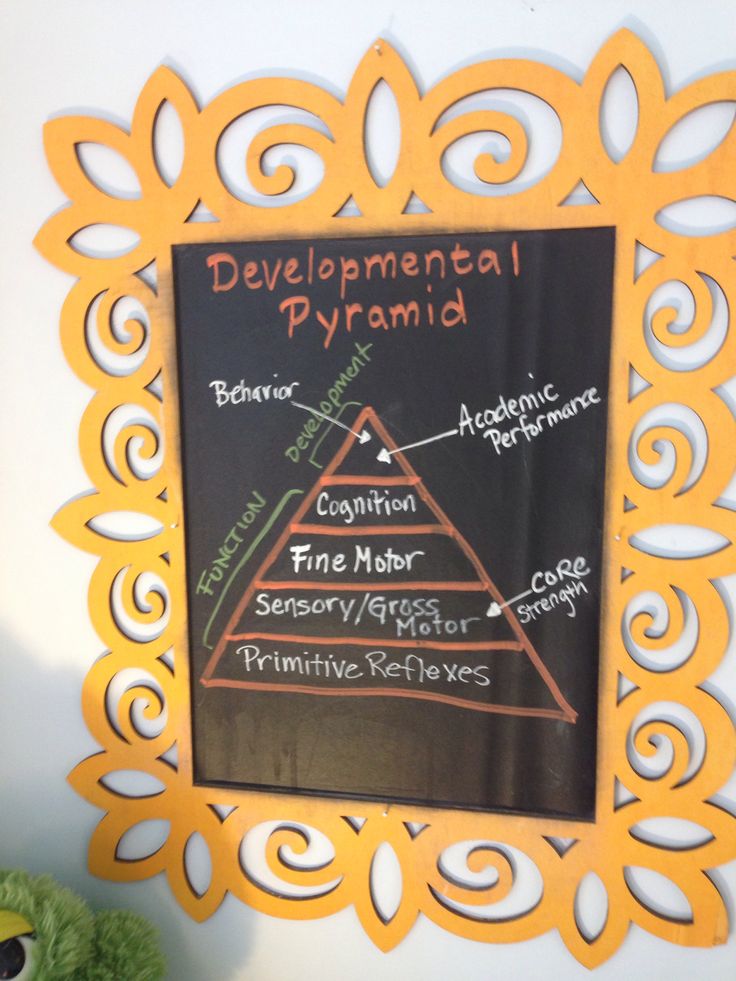 Developmental
Pyramid
Development
Behavior
Academic
Performance
FUNCTION
Cognition
Fine Motor
CORE
Strength
Sensory/Gross
Motor
Primitive Reflexes